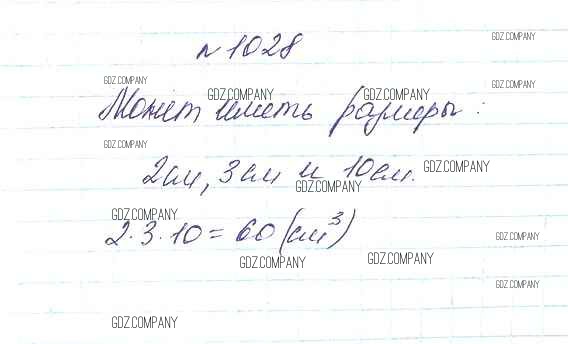 GDZ.COMPANY
№ 1028
GDZ.COMPANY GDZ.COMPANY
GDZ.COMPANY GDZ.COMPANY
Может иметь размеры:
GDZ.COMPANY
2 см, 3 см и 10 см.
GDZ.COMPANY
GDZ.COMPANY
GDZ.COMPANY
2 · 3 · 10 = 60 (см³)
GDZ.COMPANY
GDZ.COMPANY GDZ.COMPANY
GDZ.COMPANY
GDZ.COMPANY